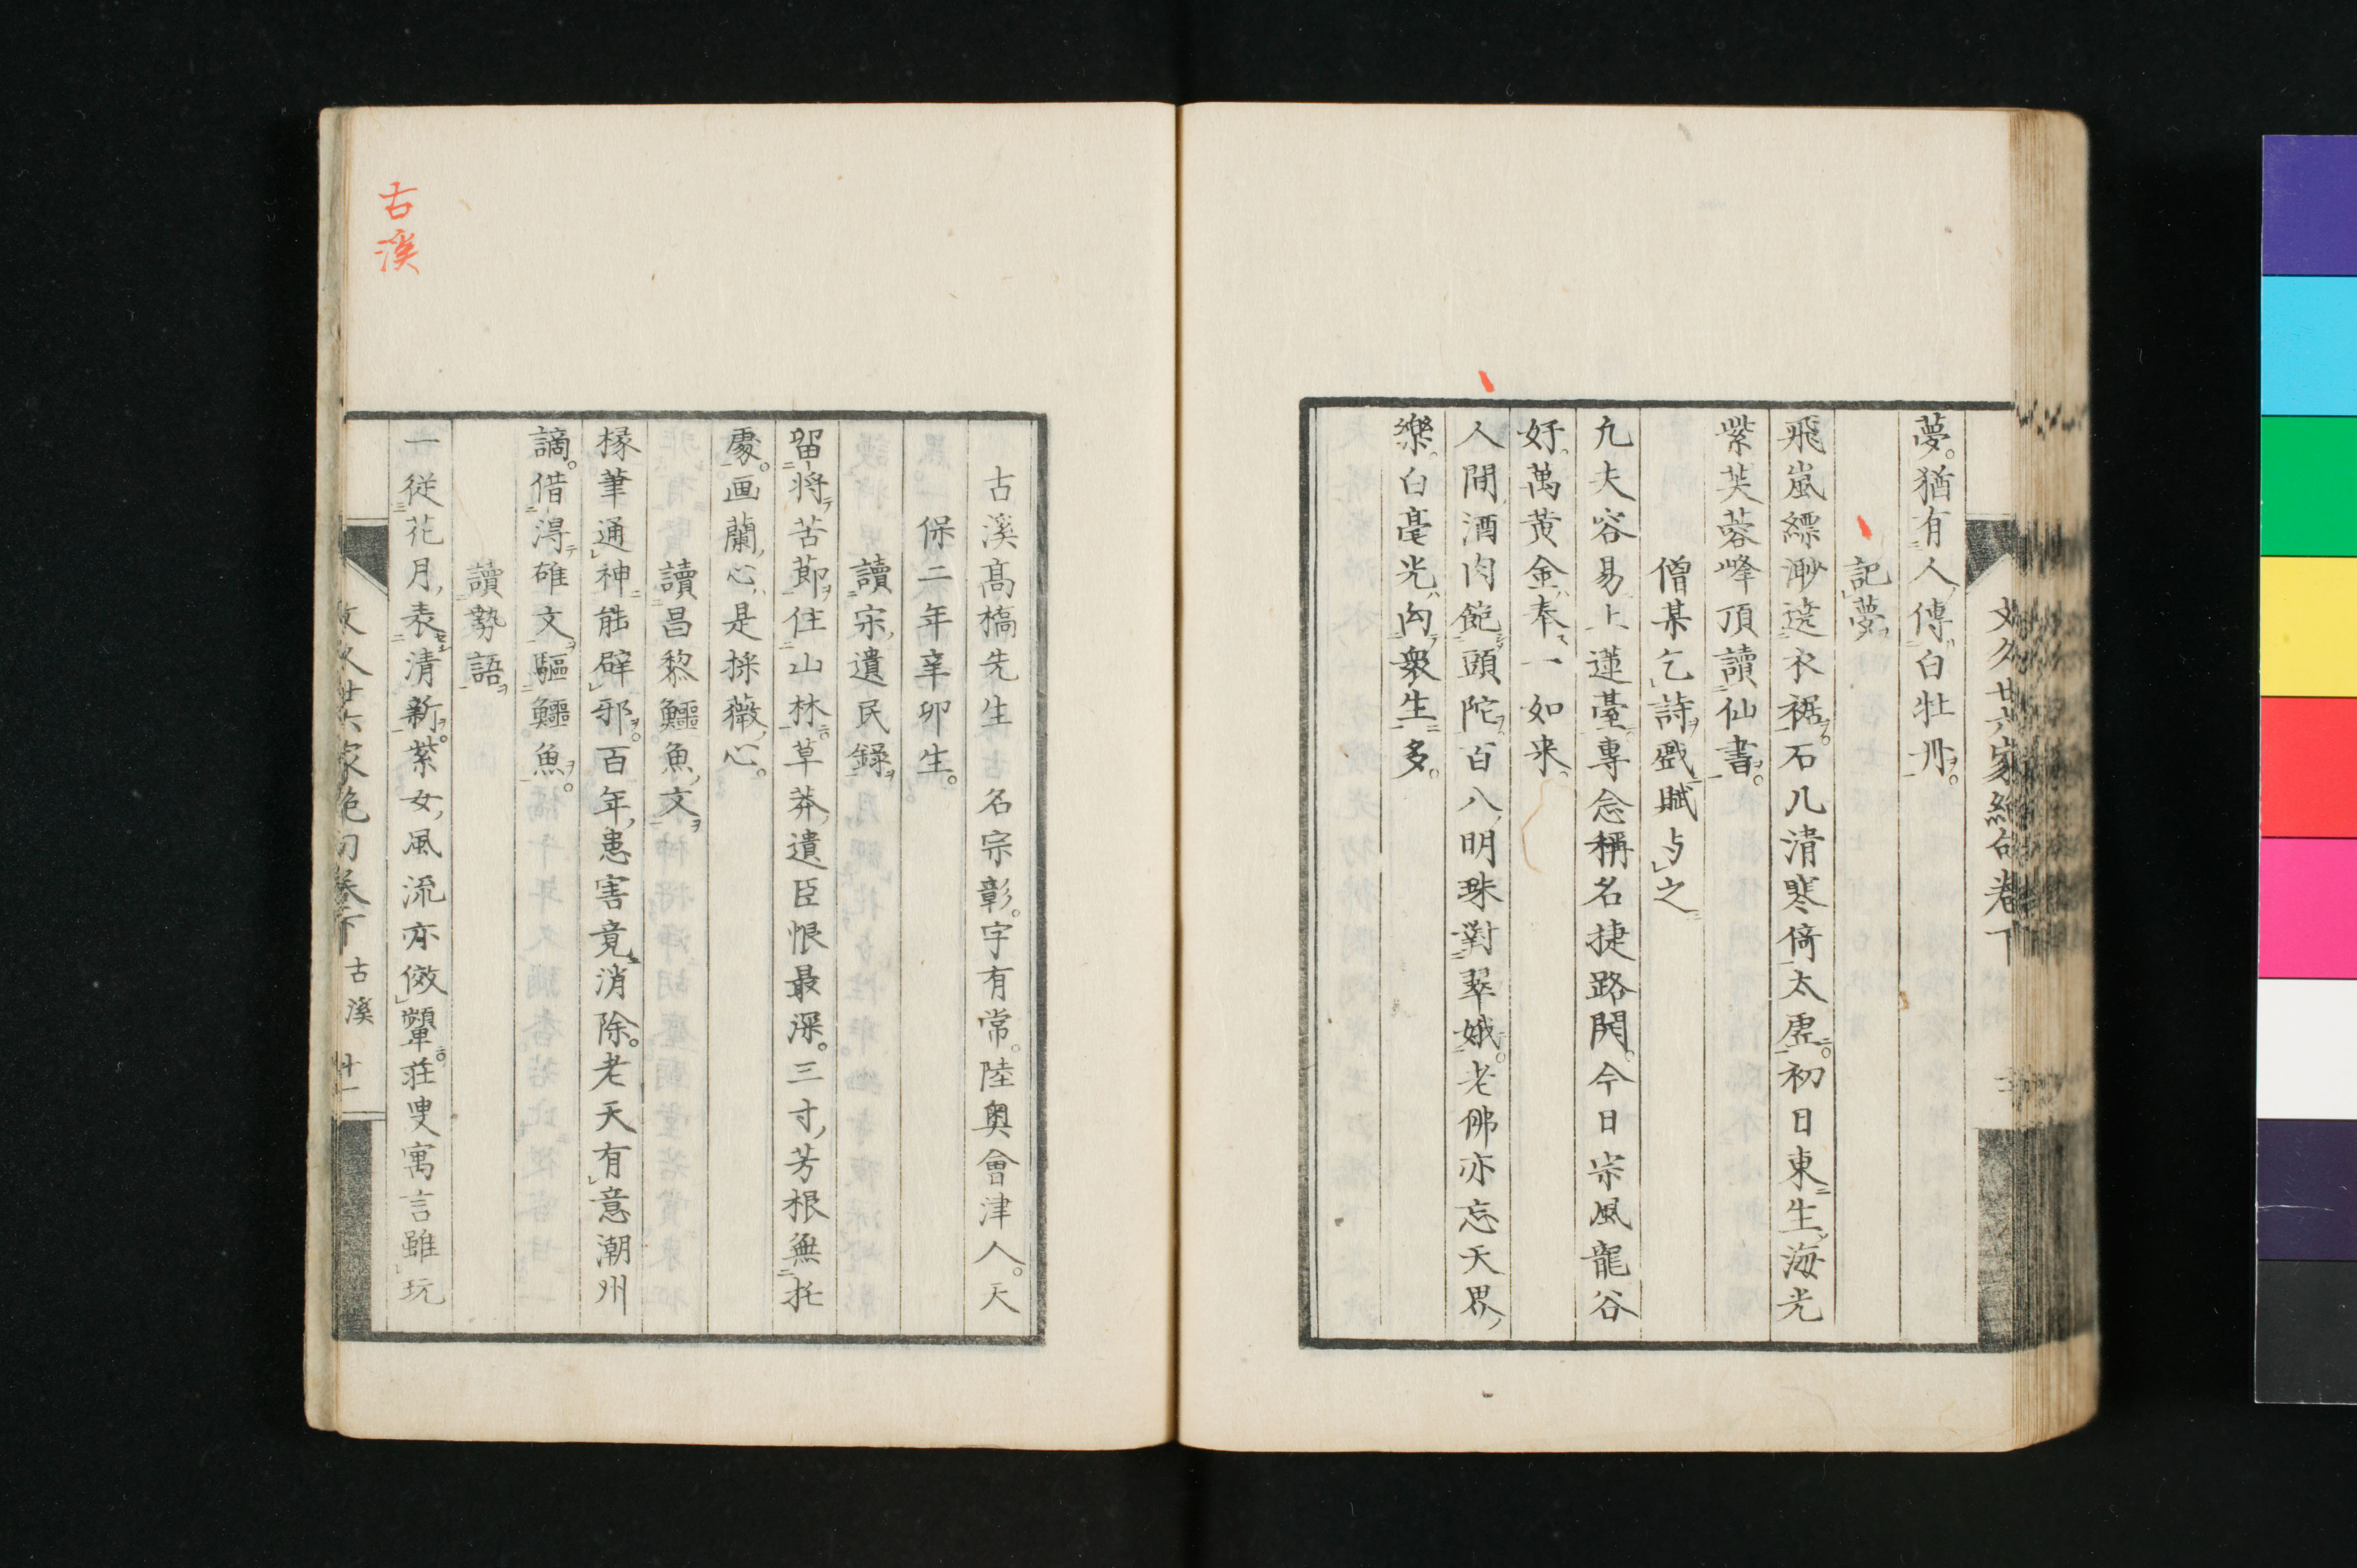 文久廿六家絶句卷下
夢。猶有人傳白牡丹。
記夢
飛嵐縹渺遶衣裾。石几清寒倚太虗。初日東生海光
紫芙蓉峰頂讀仙書。
僧某乞詩戲賦与之
凢夫容易上蓮臺專念稱名捷路開。今日宗風龍谷
好萬黄金奉一如来
人間酒肉飽頭陀百八明珠對翠娥。老佛亦忘天界
樂白毫光内衆生多。
古溪
古溪髙橋先生 名宗彰。字有常。陸奥會津人。天
保二年辛卯生。
讀宋遺民錄
留将苦節住山林草莽遺臣恨最深。三寸芳根無托
處。画蘭心是採薇心。
讀昌黎鱷魚文
椽筆通神能辟邪。百年患害竟消除。老天有意潮州
謫。借淂碓文驅鱷魚。
讀勢語
一從花月表清新。紫女風流亦傚顰。莊叟寓言雖玩
文久廿六家絶句卷下 古溪 廿一